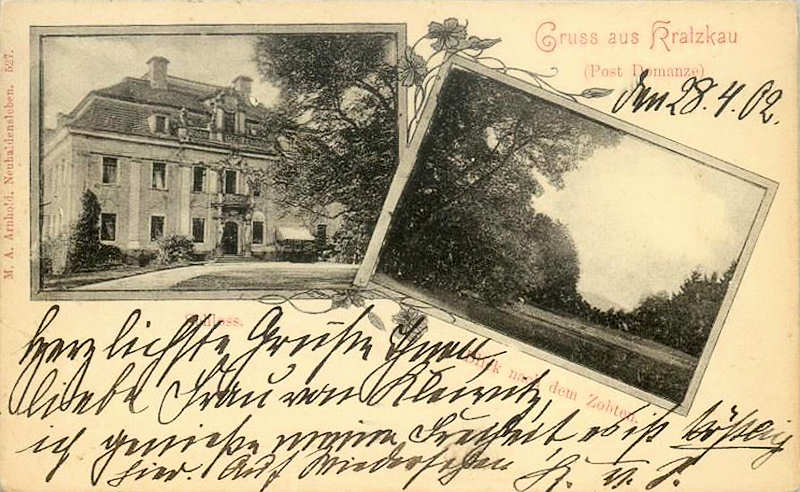 Gruss aus Kratzkau
(Post Domanze)
den 28.4.02.
M. A. Arnhold, Neuhaldensleben. 527.
Schloss.
Blick nach dem Zobten.
herzlichste Grüße Ihnen
liebe Frau von
ich genieße meine Freiheit, es ist köstlich
hier. Auf Wiedersehen